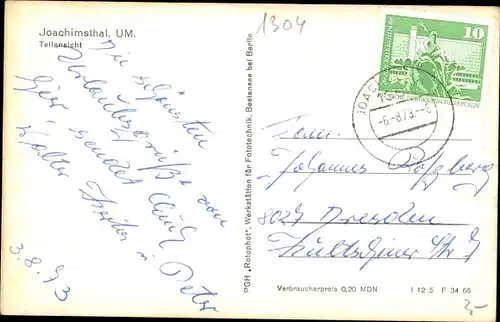 Joachimsthal, UM.
Teilansicht
1304
Die schönsten
Urlaubsgrüße von
hier sendet Euch
Walter
u. Peter
3.8.73
PGH „Rotophot", Werkstätten für Fototechnik, Bestensee bei Berlin
10
JOACH
-6.-8.73.-
DEUTSCHE DEMOKRATISCHE REPUBLIK
Fam.
Johannes
8027 Dresden
Verbraucherpreis 0,20 MDN
I 12 5 F 34 66
2,-